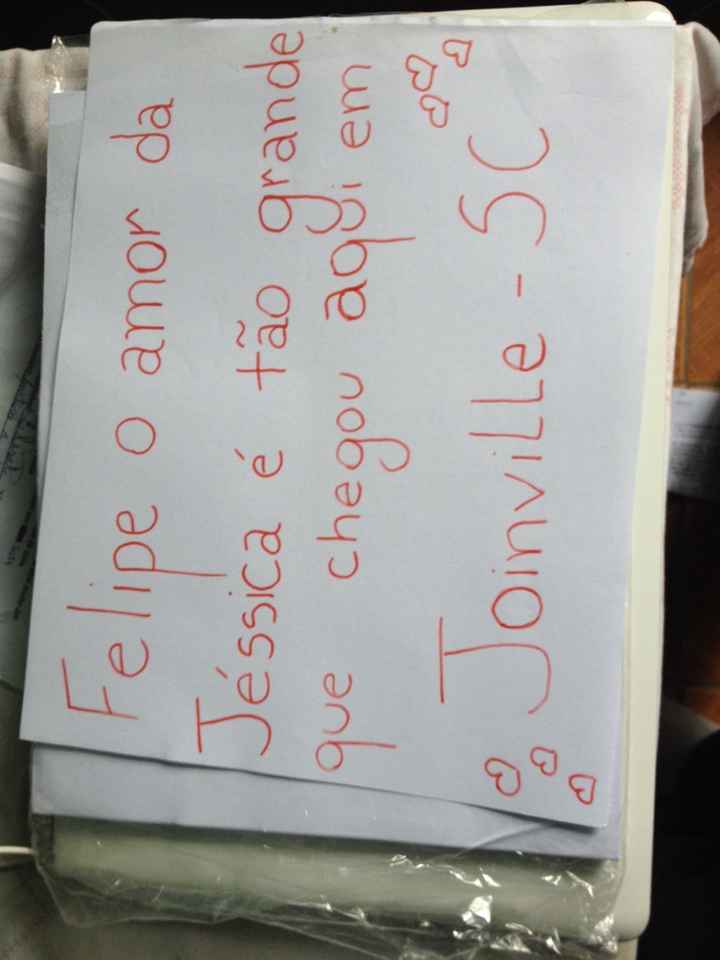 Felipe o amor da
Jéssica é tão grande
que chegou aqui em
Joinville - SC